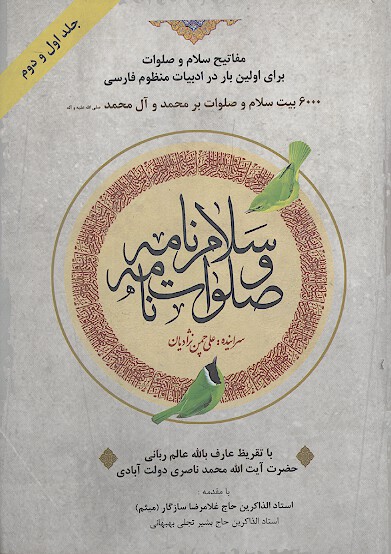 جلد اول و دوم
مفاتیح سلام و صلوات
برای اولین بار در ادبیات منظوم فارسی
۶۰۰۰ بیت سلام و صلوات بر محمد و آل محمد صلی الله علیه و آله
سلام نامه
و
صلوات نامه
سراینده: علی چمن نژادیان
با تقریظ عارف بالله عالم ربانی
حضرت آیت الله محمد ناصری دولت آبادی
با مقدمه:
استاد الذاکرین حاج غلامرضا سازگار (میثم)
استاد الذاکرین حاج بشیر تجلی بهبهانی